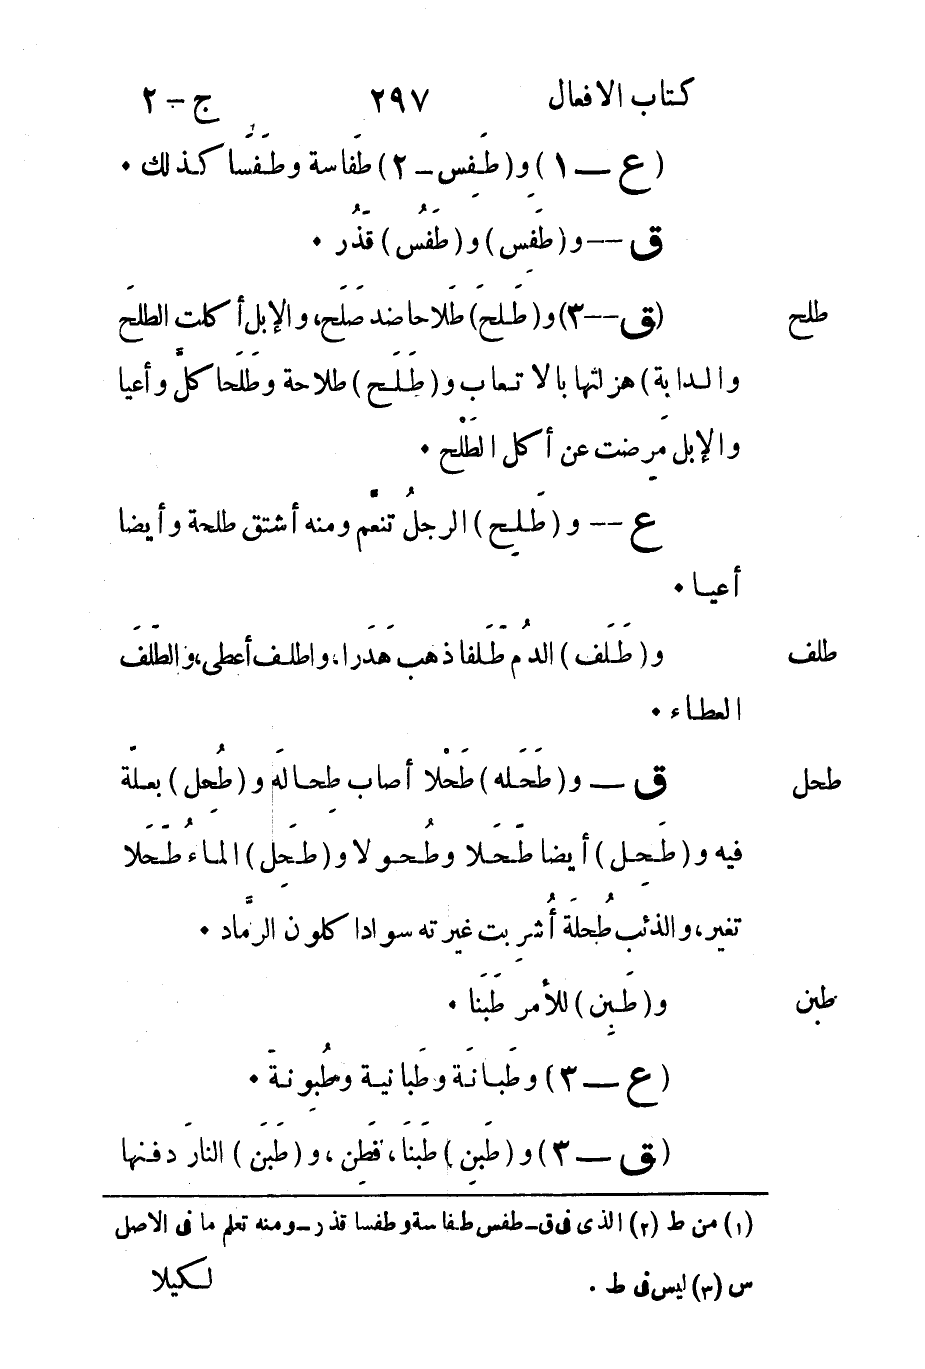 كتاب الافعال ٢٩٧ ج – ٢
(ع — ١) و (طَفِس – ٢) طَفاسة وطَفَسًا كذلك ٠
ق -- و (طَفِس) و (طَفُس) قَذُر ٠
طلح (ق -- ٣) و (طَلَحَ) طَلاحا ضد صَلَح، والإبل أكلت الطلحَ
والدابة) هزلتها بالاتعاب و (طَلِح) طلاحة وطَلَحا كلَّ وأعيا
والإبل مَرِضت عن أكل الطَلْح ٠
ع -- و (طَلِح) الرجلُ تنعّم ومنه أشتق طلحة وأيضا
أعيا ٠
طلف و (طَلَف) الدُم طَلَفا ذهب هَدَرا، واطلف أعطى، والطَّلَف
العطاء ٠
طحل ق — و (طَحَله) طَحْلا أصاب طِحاله و (طُحِل) بعلّة
فيه و (طَحِل) أيضا طَحَلا وطُحولا و (طَحِل) الماءُ طَحَلا
تغير، والذئب طُحلَة أُشرِبت غبرته سوادا كلون الرَّماد ٠
طبن و (طَبِن) للأمر طَبَنا ٠
(ع — ٣) وطَبانَة وطَبانية وطُبونة ٠
(ق — ٣) و (طَبِن) طَبَنا، فَطِن، و (طَبَن) النارَ دفنها
(١) من ط (٢) الذى فى ق – طفس طفاسة وطفسا قذر – ومنه تعلم ما فى الاصل
س (٣) ليس فى ط ٠ لكيلا